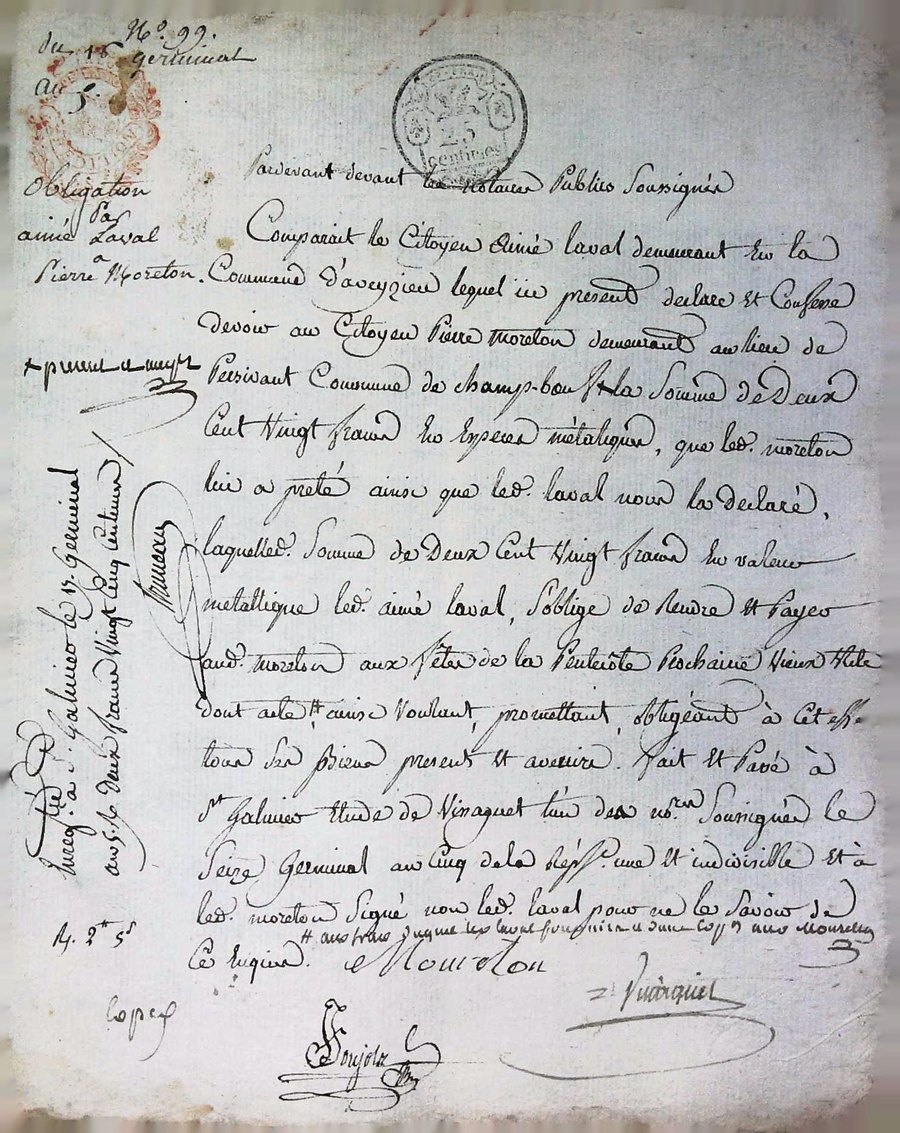 No. 99.
du 16 germinal
an 5.
25
centimes
obligation
Par
aimé Laval
a
Pierre Moreton.
Pardevant devant les notaires Publics Soussignés
Comparait le Citoyen aimé laval demeurant en la
Commune d'aveyzieu lequel ici present declare et Confesse
devoir au Citoyen Pierre moreton demeurant au lieu de
Commune de champ-boeuf + la Somme de Deux
+ present et
Cent Vingt francs en Especes métaliques, que led. moreton
lui a preté ainsi que led. laval nous la declaré,
laquelled. Somme de Deux Cent Vingt francs en valeur
metallique led. aimé laval, S'oblige de Rendre et Payer
aud. moreton aux fêtes de la Pentecôte Prochaine Vieux stile
dont acte # ainsi Voulant, promettant, obligeant à Cet eff.
tous Ses Biens present et avenire. fait et Passé à
St Galmier Etude de l'un des nores Soussignés le
Seize Germinal an Cinq de la Rép. une et indivisible et à
led. moreton Signé non led. laval pour ne le Savoir de
# aux frais
Ce Enquis.
Mourelon
à St. Galmier le 17. Germinal
an 5. R. deux francs Vingt Cinq Centimes